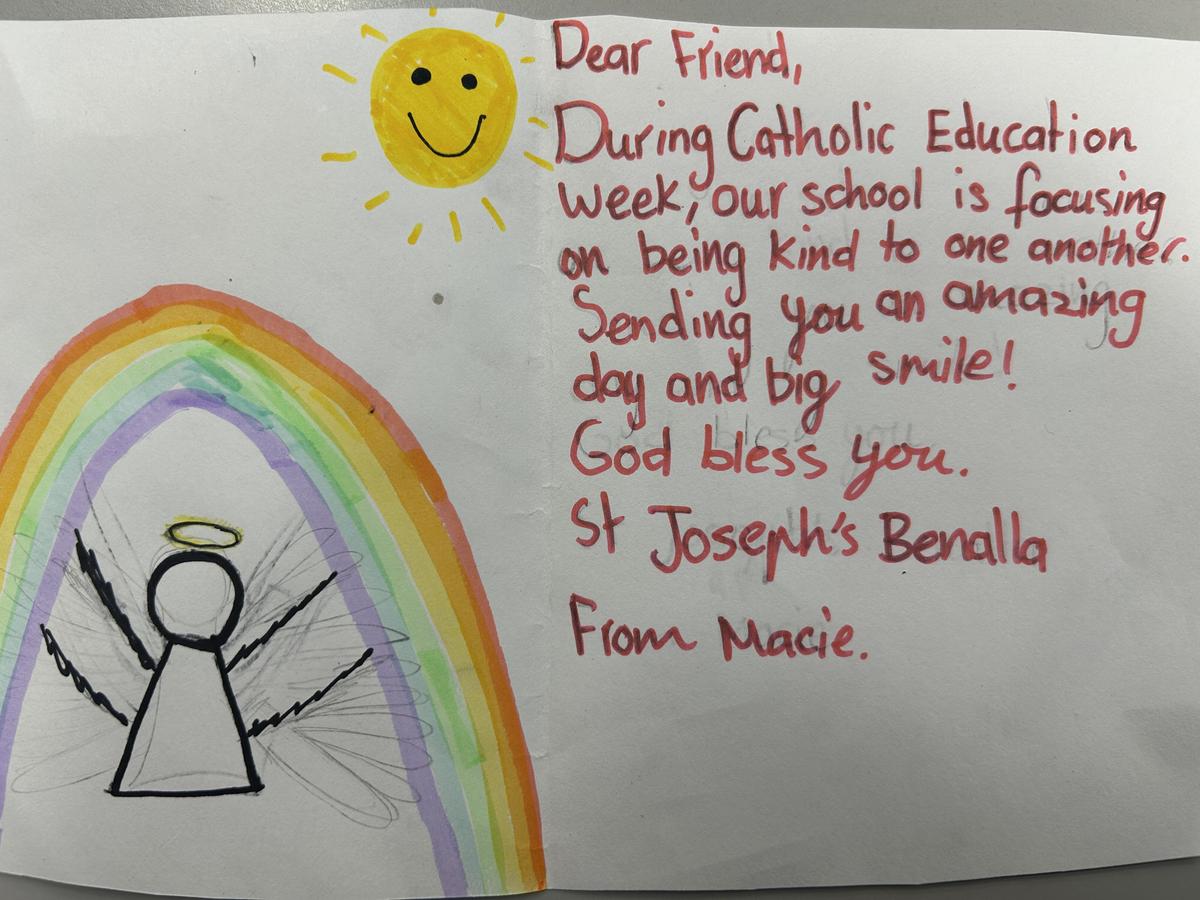 Dear Friend,
During Catholic Education
week, our school is focusing
on being kind to one another.
Sending you an amazing
day and big smile!
God bless you.
St Joseph's Benalla
From Macie.